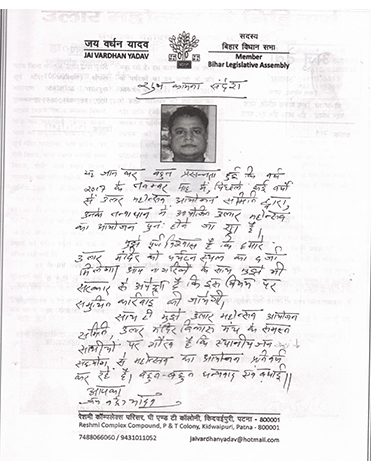 जय वर्धन यादव
JAI VARDHAN YADAV
सदस्य
बिहार विधान सभा
Member
Bihar Legislative Assembly
शुभ कामना संदेश
यह जान कर बहुत प्रसन्नता हुई कि वर्ष
2017 के नवम्बर माह में, पिछले कई वर्षों
से उलार महोत्सव आयोजन समिति द्वारा,
उनके तत्वाधान में आयोजित उलार महोत्सव
का आयोजन पुनः होने जा रहा है।
मुझे पूर्ण विश्वास है कि हमारे
उलार मंदिर को पर्यटन स्थल का दर्जा
मिलेगा। आम नागरिकों के साथ मुझे भी
सरकार से अपेक्षा है कि इस विषय पर
समुचित कार्रवाई की जायेगी।
साथ ही मुझे, उलार महोत्सव आयोजन
समिति, उलार मंदिर विकास मंच के समस्त
साथीयों पर गौरव है कि स्थानीय जन
सहयोग से महोत्सव का आयोजन प्रतिवर्ष
कर रहे हैं। बहुत-बहुत धन्यवाद एवं बधाई।।
आपका
रेशमी कॉम्पलेक्स परिसर, पी एण्ड टी कॉलोनी, किदवईपुरी, पटना - 800001
Reshmi Complex Compound, P & T Colony, Kidwaipuri, Patna - 800001
7488066060 / 9431011052
jaivardhanyadav@hotmail.com